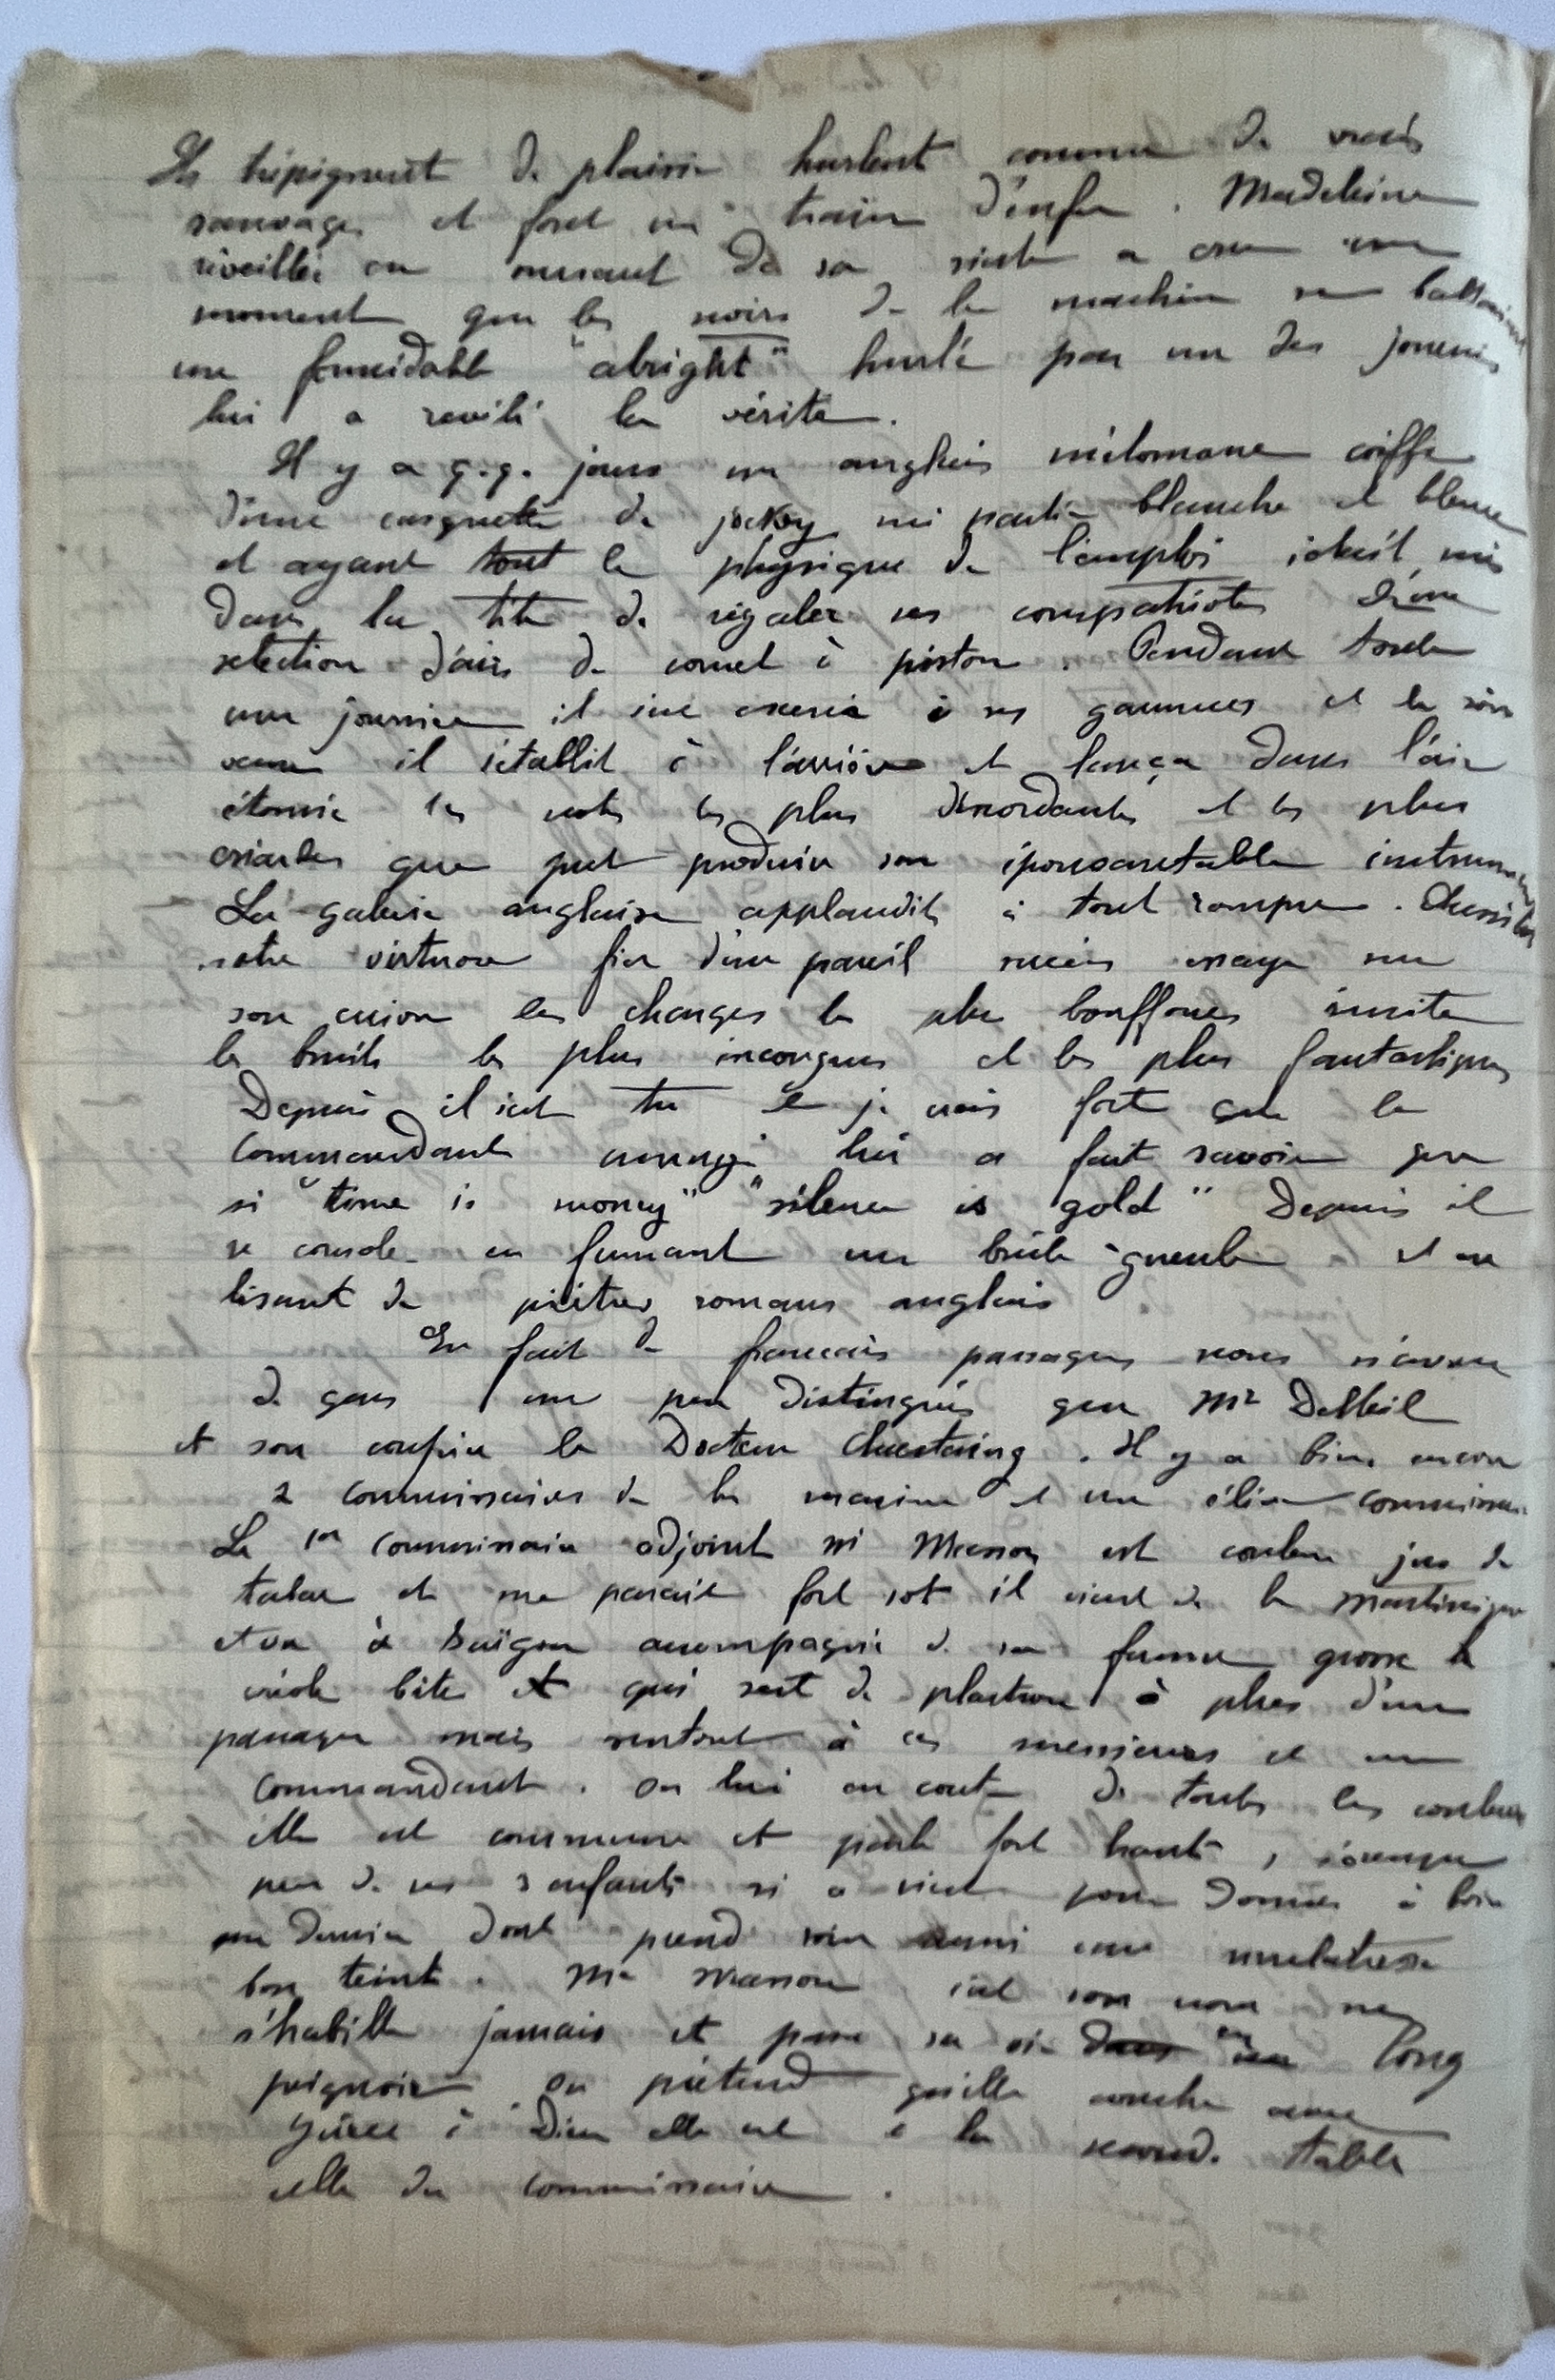 Ils trépignent de plaisir hurlent comme de vrais
sauvages et font un train d'enfer. Madeleine
réveillée en sursaut de sa sieste a cru un
moment que les noirs de la machine se battaient
un formidable "alright" hurlé par un des joueurs
lui a révélé la vérité.
Il y a q.q. jours un anglais mélomane coiffé
d'une casquette de jockey mi partie blanche et bleue
et ayant tout le physique de l'emploi s'était mis
dans la tête de régaler ses compatriotes d'une
sélection d'airs de cornet à piston. Pendant toute
une journée il s'est exercé à ses gammes et le soir
venu il s'établit à l'arrière et lança dans l'air
étonné les notes les plus discordantes et les plus
criardes que put produire son épouvantable instrument
La galerie anglaise applaudit à tout rompre. Aussitôt
notre virtuose fier d'un pareil succès essaye sur
son cuivre les charges les plus bouffonnes imite
les bruits les plus incongrus et les plus fantastiques
Depuis il s'est tu et je crois fort que le
Commandant enragé lui a fait savoir que
si "time is money" "silence is gold" Depuis il
se console en fumant un brûle-gueule et en
lisant de piètres romans anglais
En fait de français passagers nous n'avons
de gens un peu distingués que Mr Delteil
et son confrère le Docteur . Il y a bien encore
2 commissaires de la marine et un élève commissaire
Le 1er commissaire adjoint Mr Masson est couleur jus de
tabac et me paraît fort sot il vient de la Martinique
et va à Saïgon accompagné de sa femme grosse
créole bête et qui sert de plastron à plus d'un
passager mais surtout à ces messieurs et au
commandant. On lui en conte de toutes les couleurs
elle est commune et parle fort haut, s'occupe
peu de ses 3 enfants si ce n'est pour donner à boire
au dernier dont prend soin aussi une mulâtresse
bon teint. Me Masson c'est son nom ne
s'habille jamais et passe sa vie dans un long
peignoir on prétend qu'elle couche avec
Grâce à Dieu elle est à la seconde table
celle du commissaire.